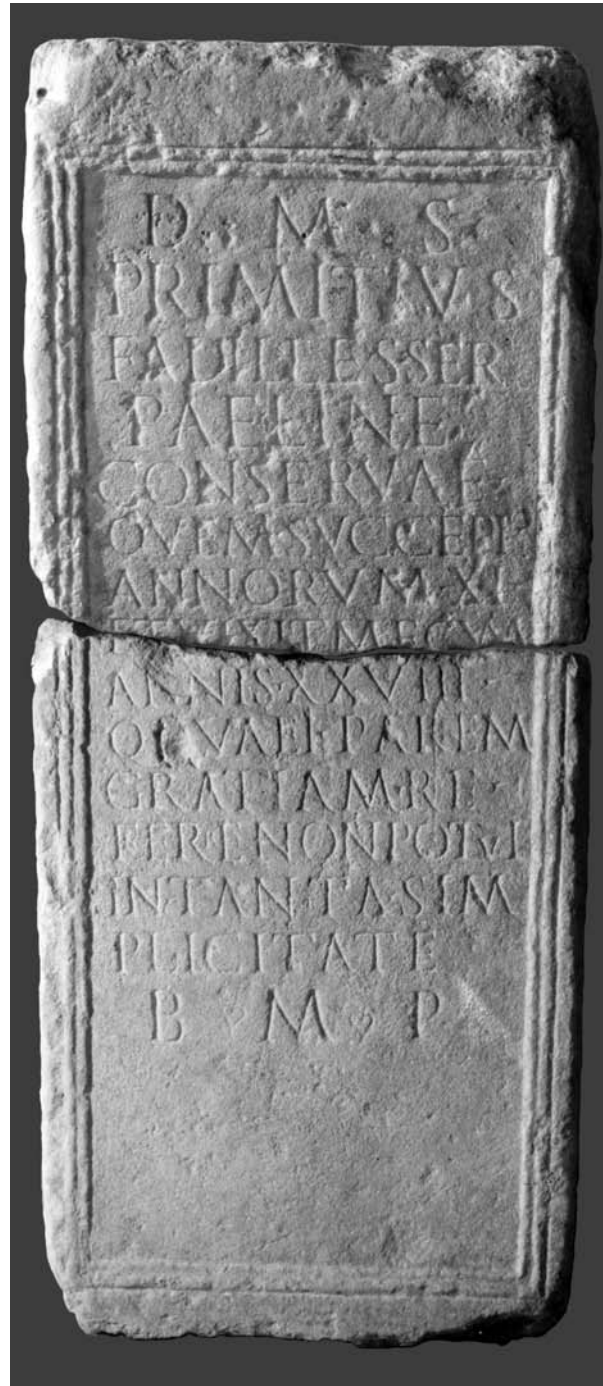 D M S
PRIMITIVS
FADILLES SER
PAELINE
CONSERVAE
QVEM SVCCEPI
ANNORVM XI
ET VIXIT MECVM
ANNIS XXVIII
CVI PAREM
GRATIAM RE
FERE NON POTVI
IN TANTA SIM
PLICITATE
B M P